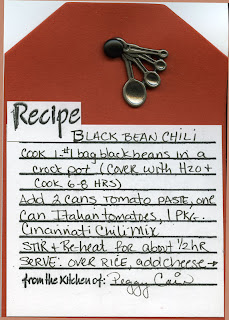 Recipe
BLACK BEAN CHILI
COOK 1 #1 bag black beans in a
crock pot (COVER WITH H2O +
COOK 6-8 HRS)
Add 2 cans tomato PASTE, one
can Italian tomatoes, 1 PKG.
Cincinnati Chili Mix
STIR + Re-heat for about 1/2 hR
SERVE: OVER RICE, add cheese →
from the Kitchen of: Peggy Cain